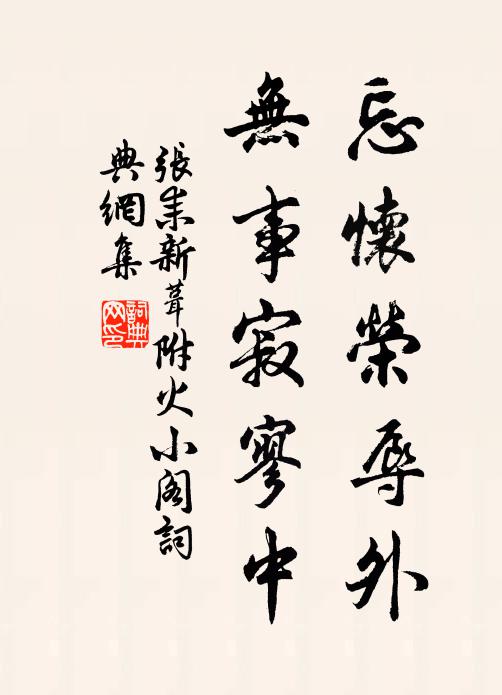 忘懷榮辱外
無事寂寥中
張耒新葺附火小閣詞
典網集
詞典
网印